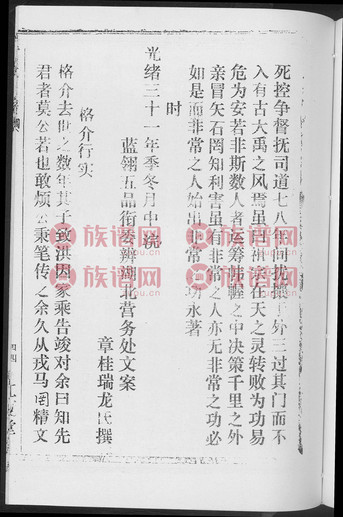 死控争督抚司道七八年间扰攘于外三过其门而不
入有古大禹之风焉虽因祖宗在天之灵转败为功易
危为安若非斯数人者运筹帷幄之中决策千里之外
亲冒矢石罔知利害虽有非常之人亦无非常之功必
如是而非常之人始出非常之功永著
时
光绪三十一年季冬月中浣
蓝翎五品衔委办湖北营务处文案
章桂瑞龙氏撰
格介行实
格介去世之数年其子致洪因家乘告竣对余曰知先
君者莫公若也敢烦公秉笔传之余久从戎马罔精文
四四
族谱网
族谱网
族谱网